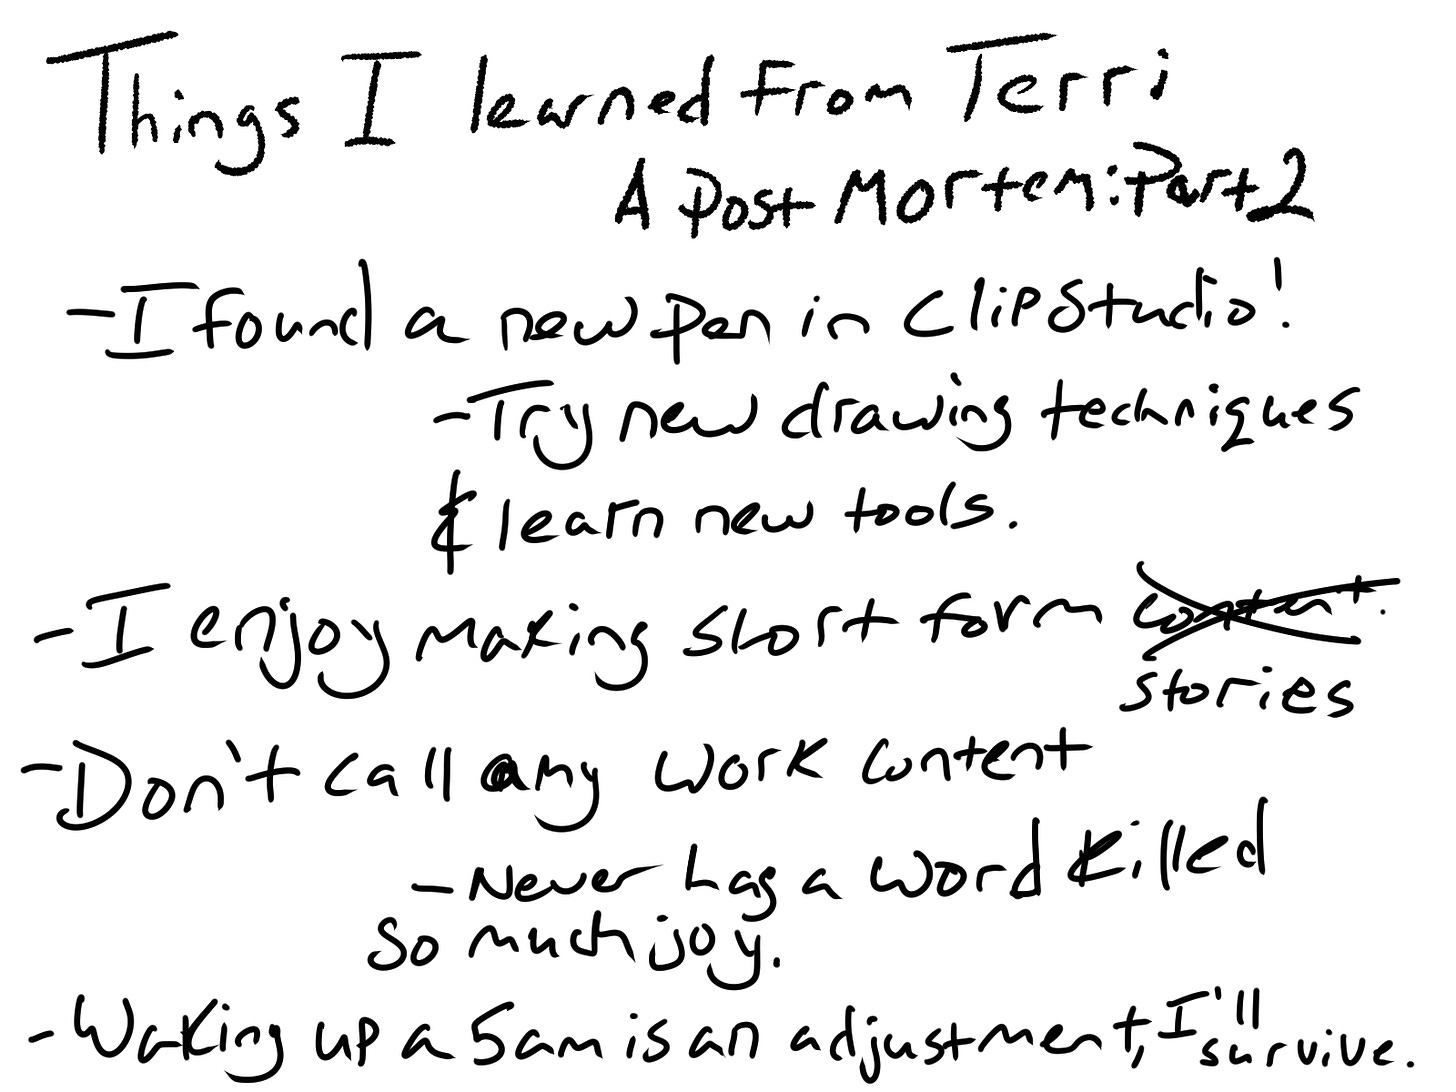 Things I learned from Terri
A Post Mortem: Part 2
- I found a new pen in Clip Studio!
- Try new drawing techniques
& learn new tools.
- I enjoy making short form content.
stories
- Don't call any work content
- Never has a word killed
so much joy.
- Waking up a 5am is an adjustment, I'll
survive.